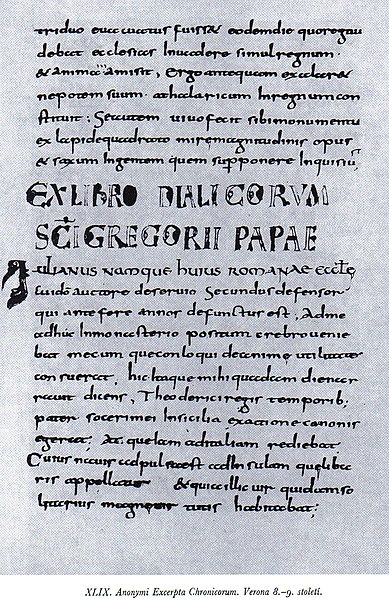 triduo euacuatus fuisset eodemdie quo regnu
debat ecclesias Inuadere simul regnum
& animā amisit, Ergo antequam exalaret
nepotem suum athalaricum Inregnum con
stituit; Secutem uiuo fecit sibi monumentu
ex lapide quadrato mire magnitudinis opus
& saxum Ingentem quem supponere Inquisiu
EX LIBRO DIALICORVM
SCI GREGORII PAPAE
IULIANUS namque huius ROMANAE eccle
cui dō auctore deseruio Secundus defensor
qui ante fere annos defunctus est, Ad me
adhuc In monasterio positum crebro uenie
bat mecum que conloqui de anime utilitate
consuerat, hic itaque mihi quadam die narr
rauit dicens, Theoderici regis temporib;
pater soceri mei In sicilia exactione canonis
egerat; At que Iam ad Italiam rediebat
Cuius nauis adpulsa est ad Insulam que liba
ris appellatur & quia illic uir quidam so
litarius magne uirtutis habitabat;
XLIX. Anonymi Excerpta Chronicorum. Verona 8.–9. století.